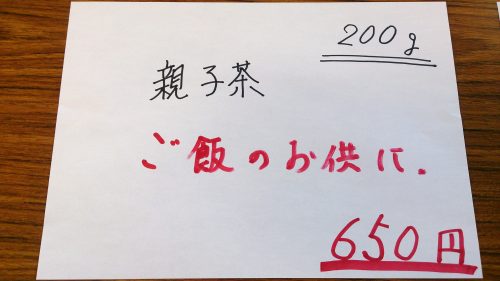 200g
親子茶
ご飯のお供に.
650円